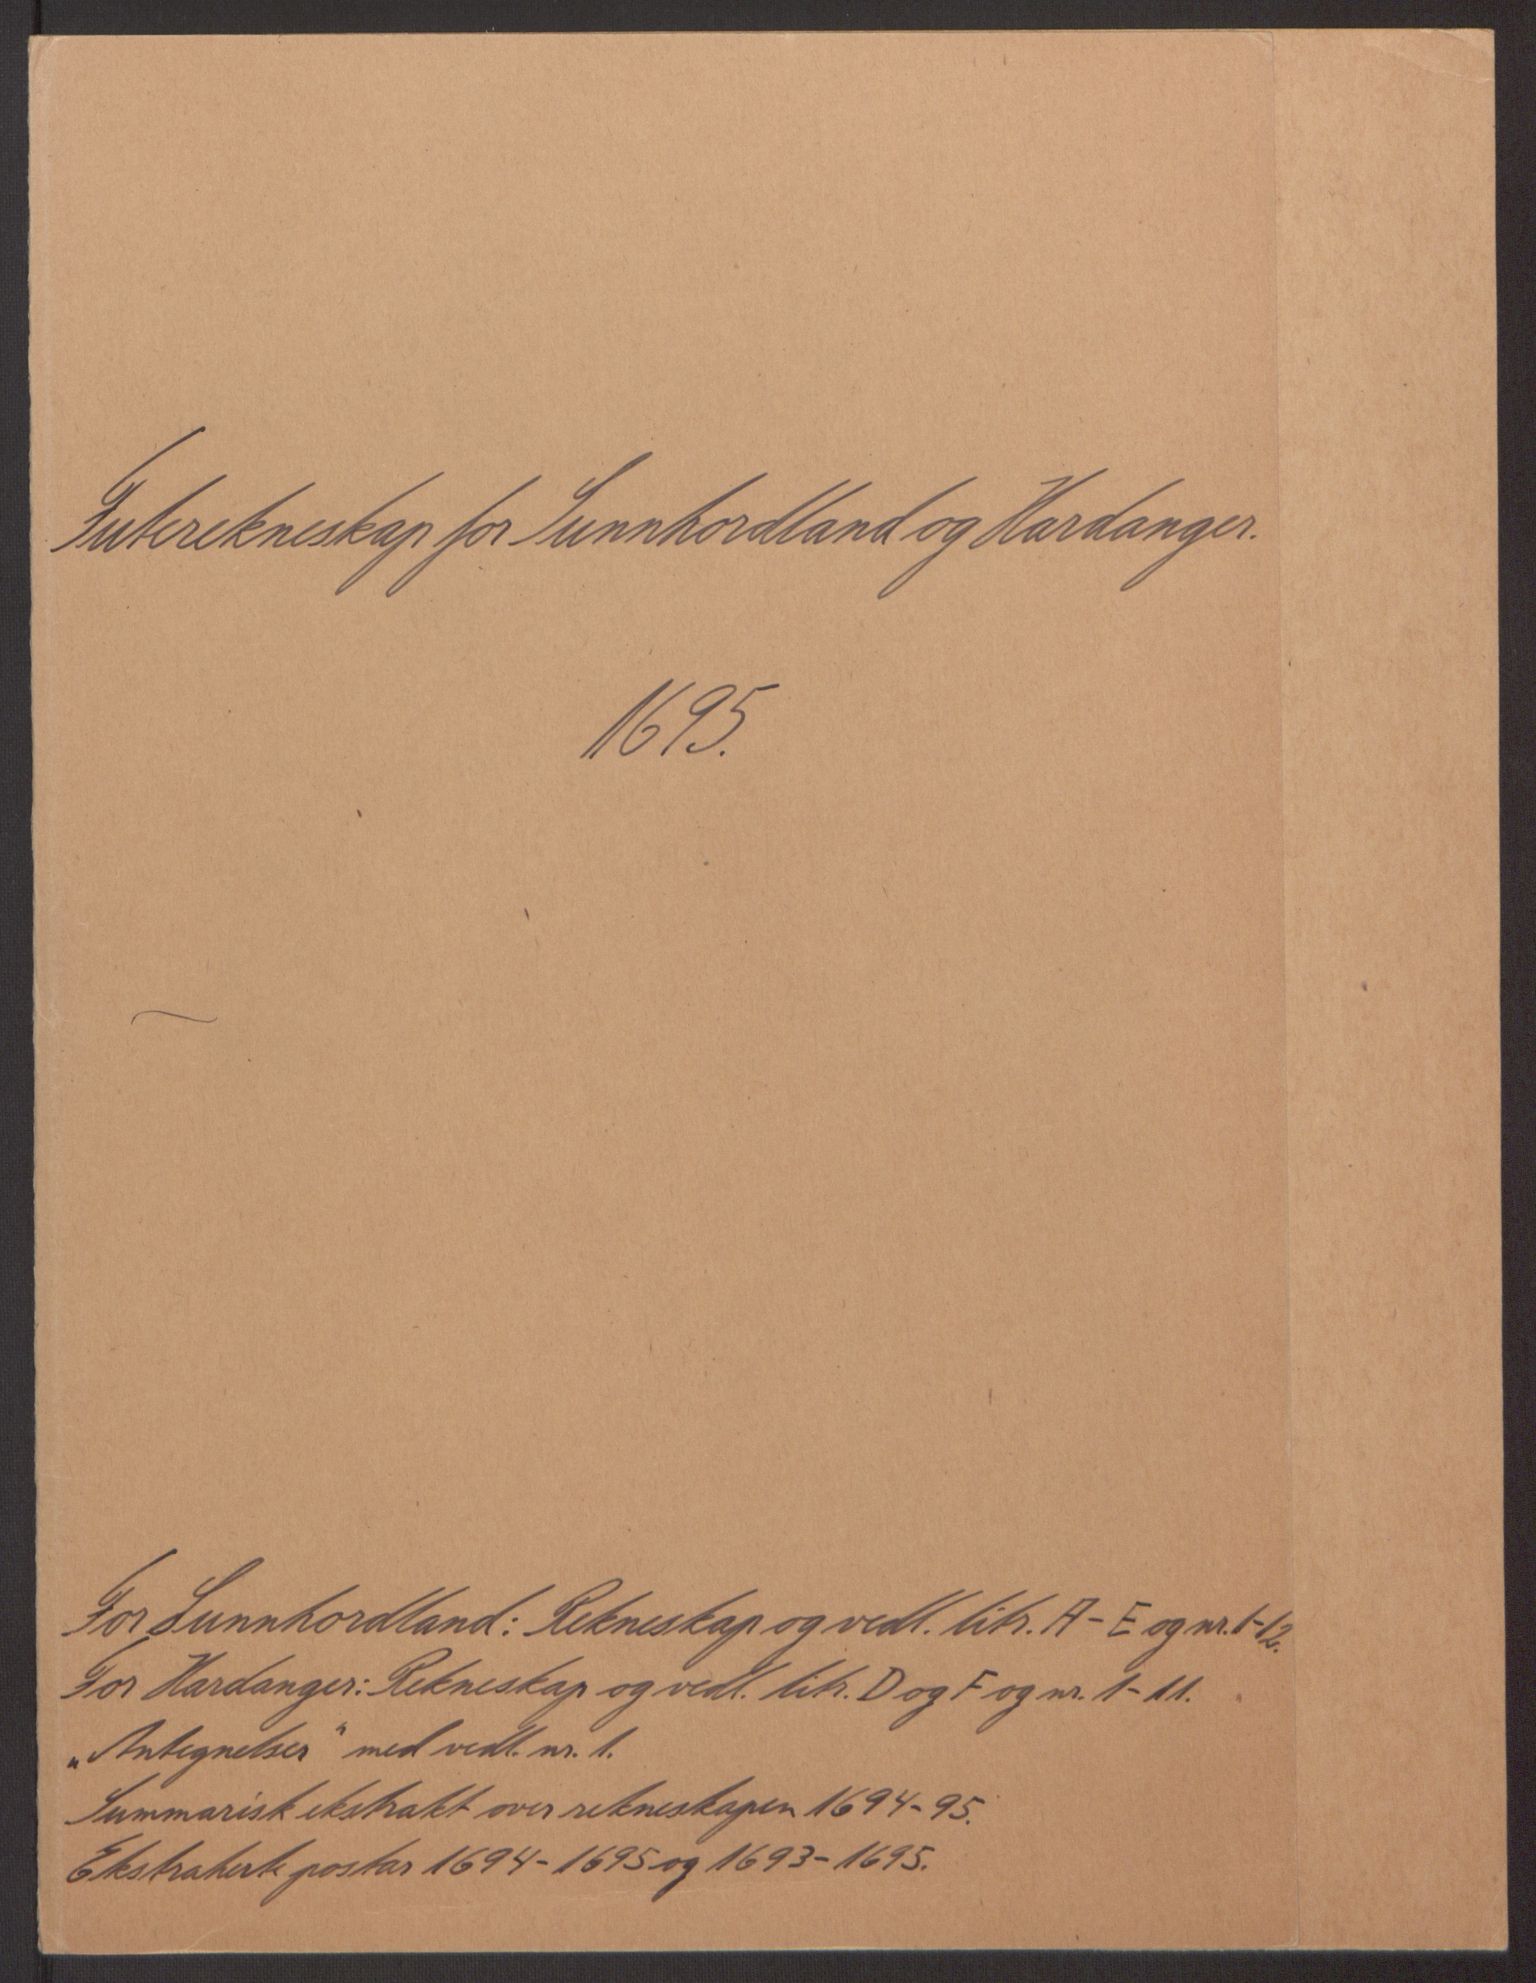 Futerekneskap for Sunnhordland og Hardanger.
1695.
For Sunnhordland: Rekneskap og vedl. litr. A - E og nr. 1-12.
For Hardanger: Rekneskap og vedl. litr. D og F og nr. 1 - 11.
„Antegnelser" med vedl. nr. 1.
Summarisk ekstrakt over rekneskapen 1694-95.
Ekstraherte postar 1694 - 1695 og 1693 - 1695.